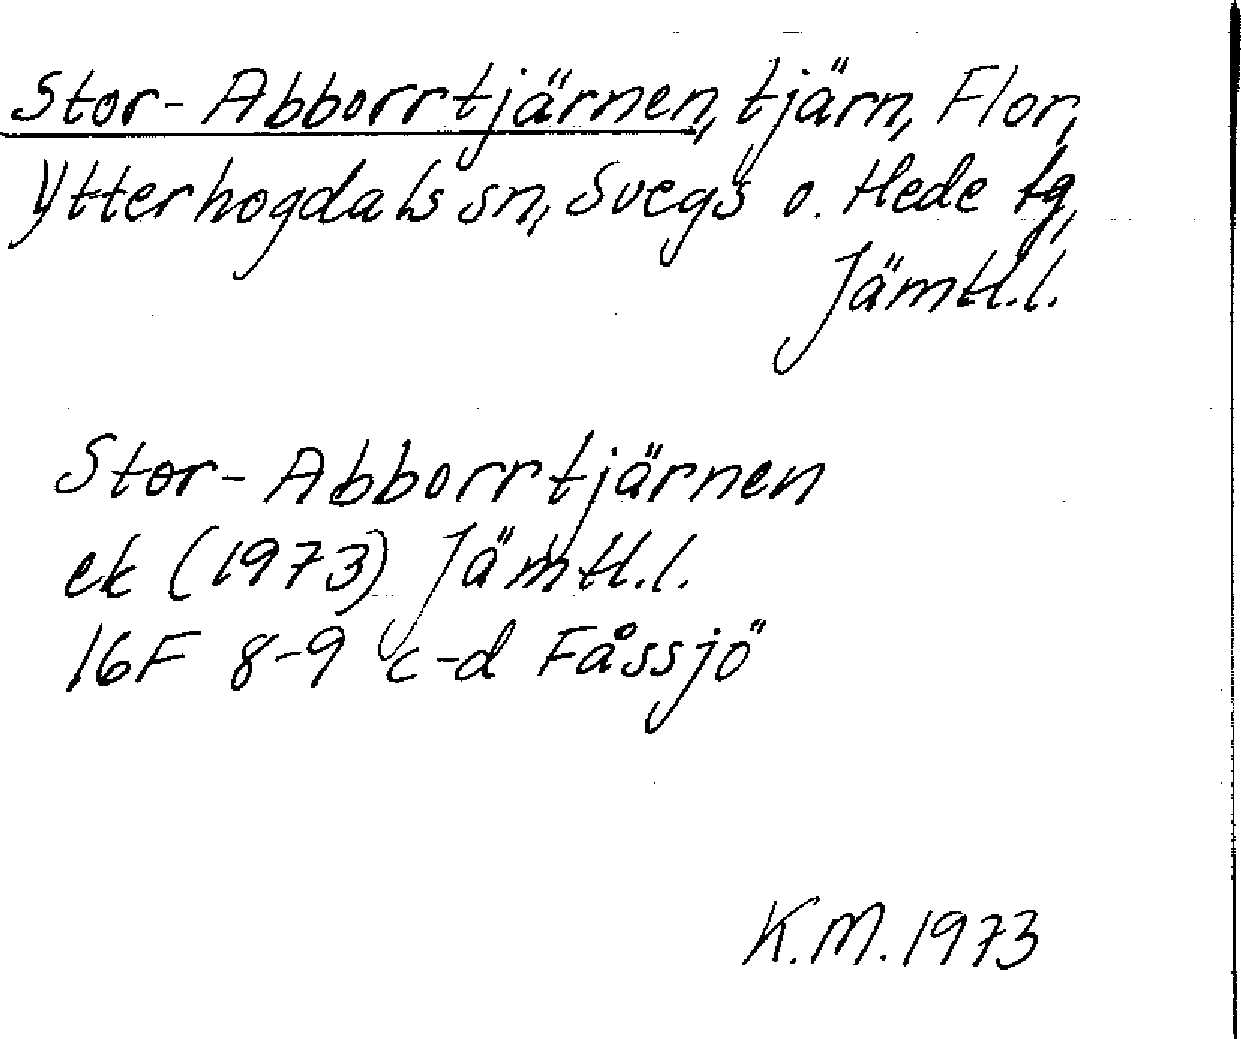 Stor-Abborrtjärnen, tjärn, Flor,
Ytterhogdals sn, Svegs o. Hede tg,
Jämtl.l.
Stor-Abborrtjärnen
ek (1973) Jämtl.l.
16F 8-9 c-d Fåssjö
K.M. 1973